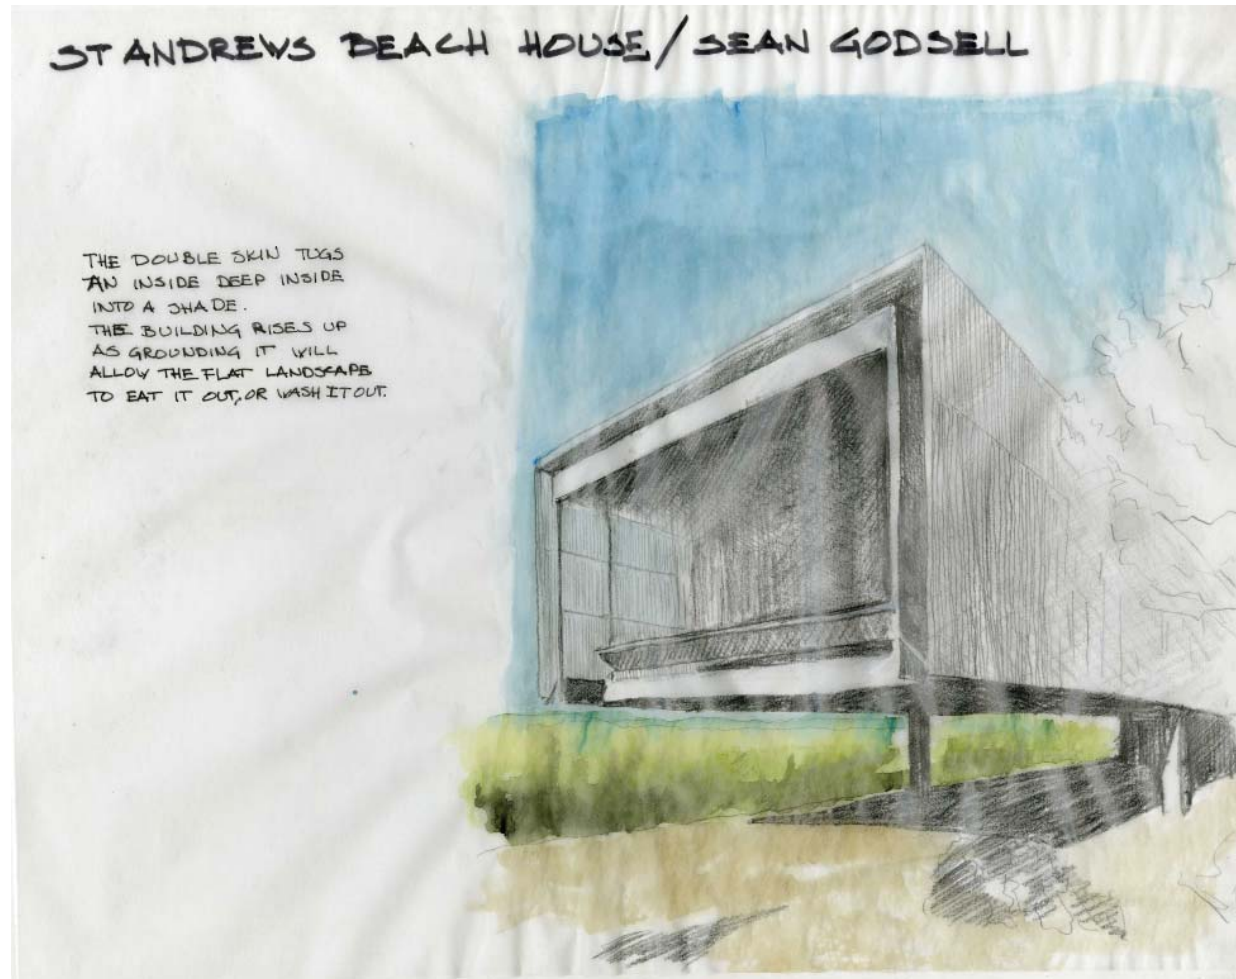 ST ANDREWS BEACH HOUSE / SEAN GODSELL
THE DOUBLE SKIN TUGS
AN INSIDE DEEP INSIDE
INTO A SHADE.
THE BUILDING RISES UP
AS GROUNDING IT WILL
ALLOW THE FLAT LANDSCAPE
TO EAT IT OUT, OR WASH IT OUT.